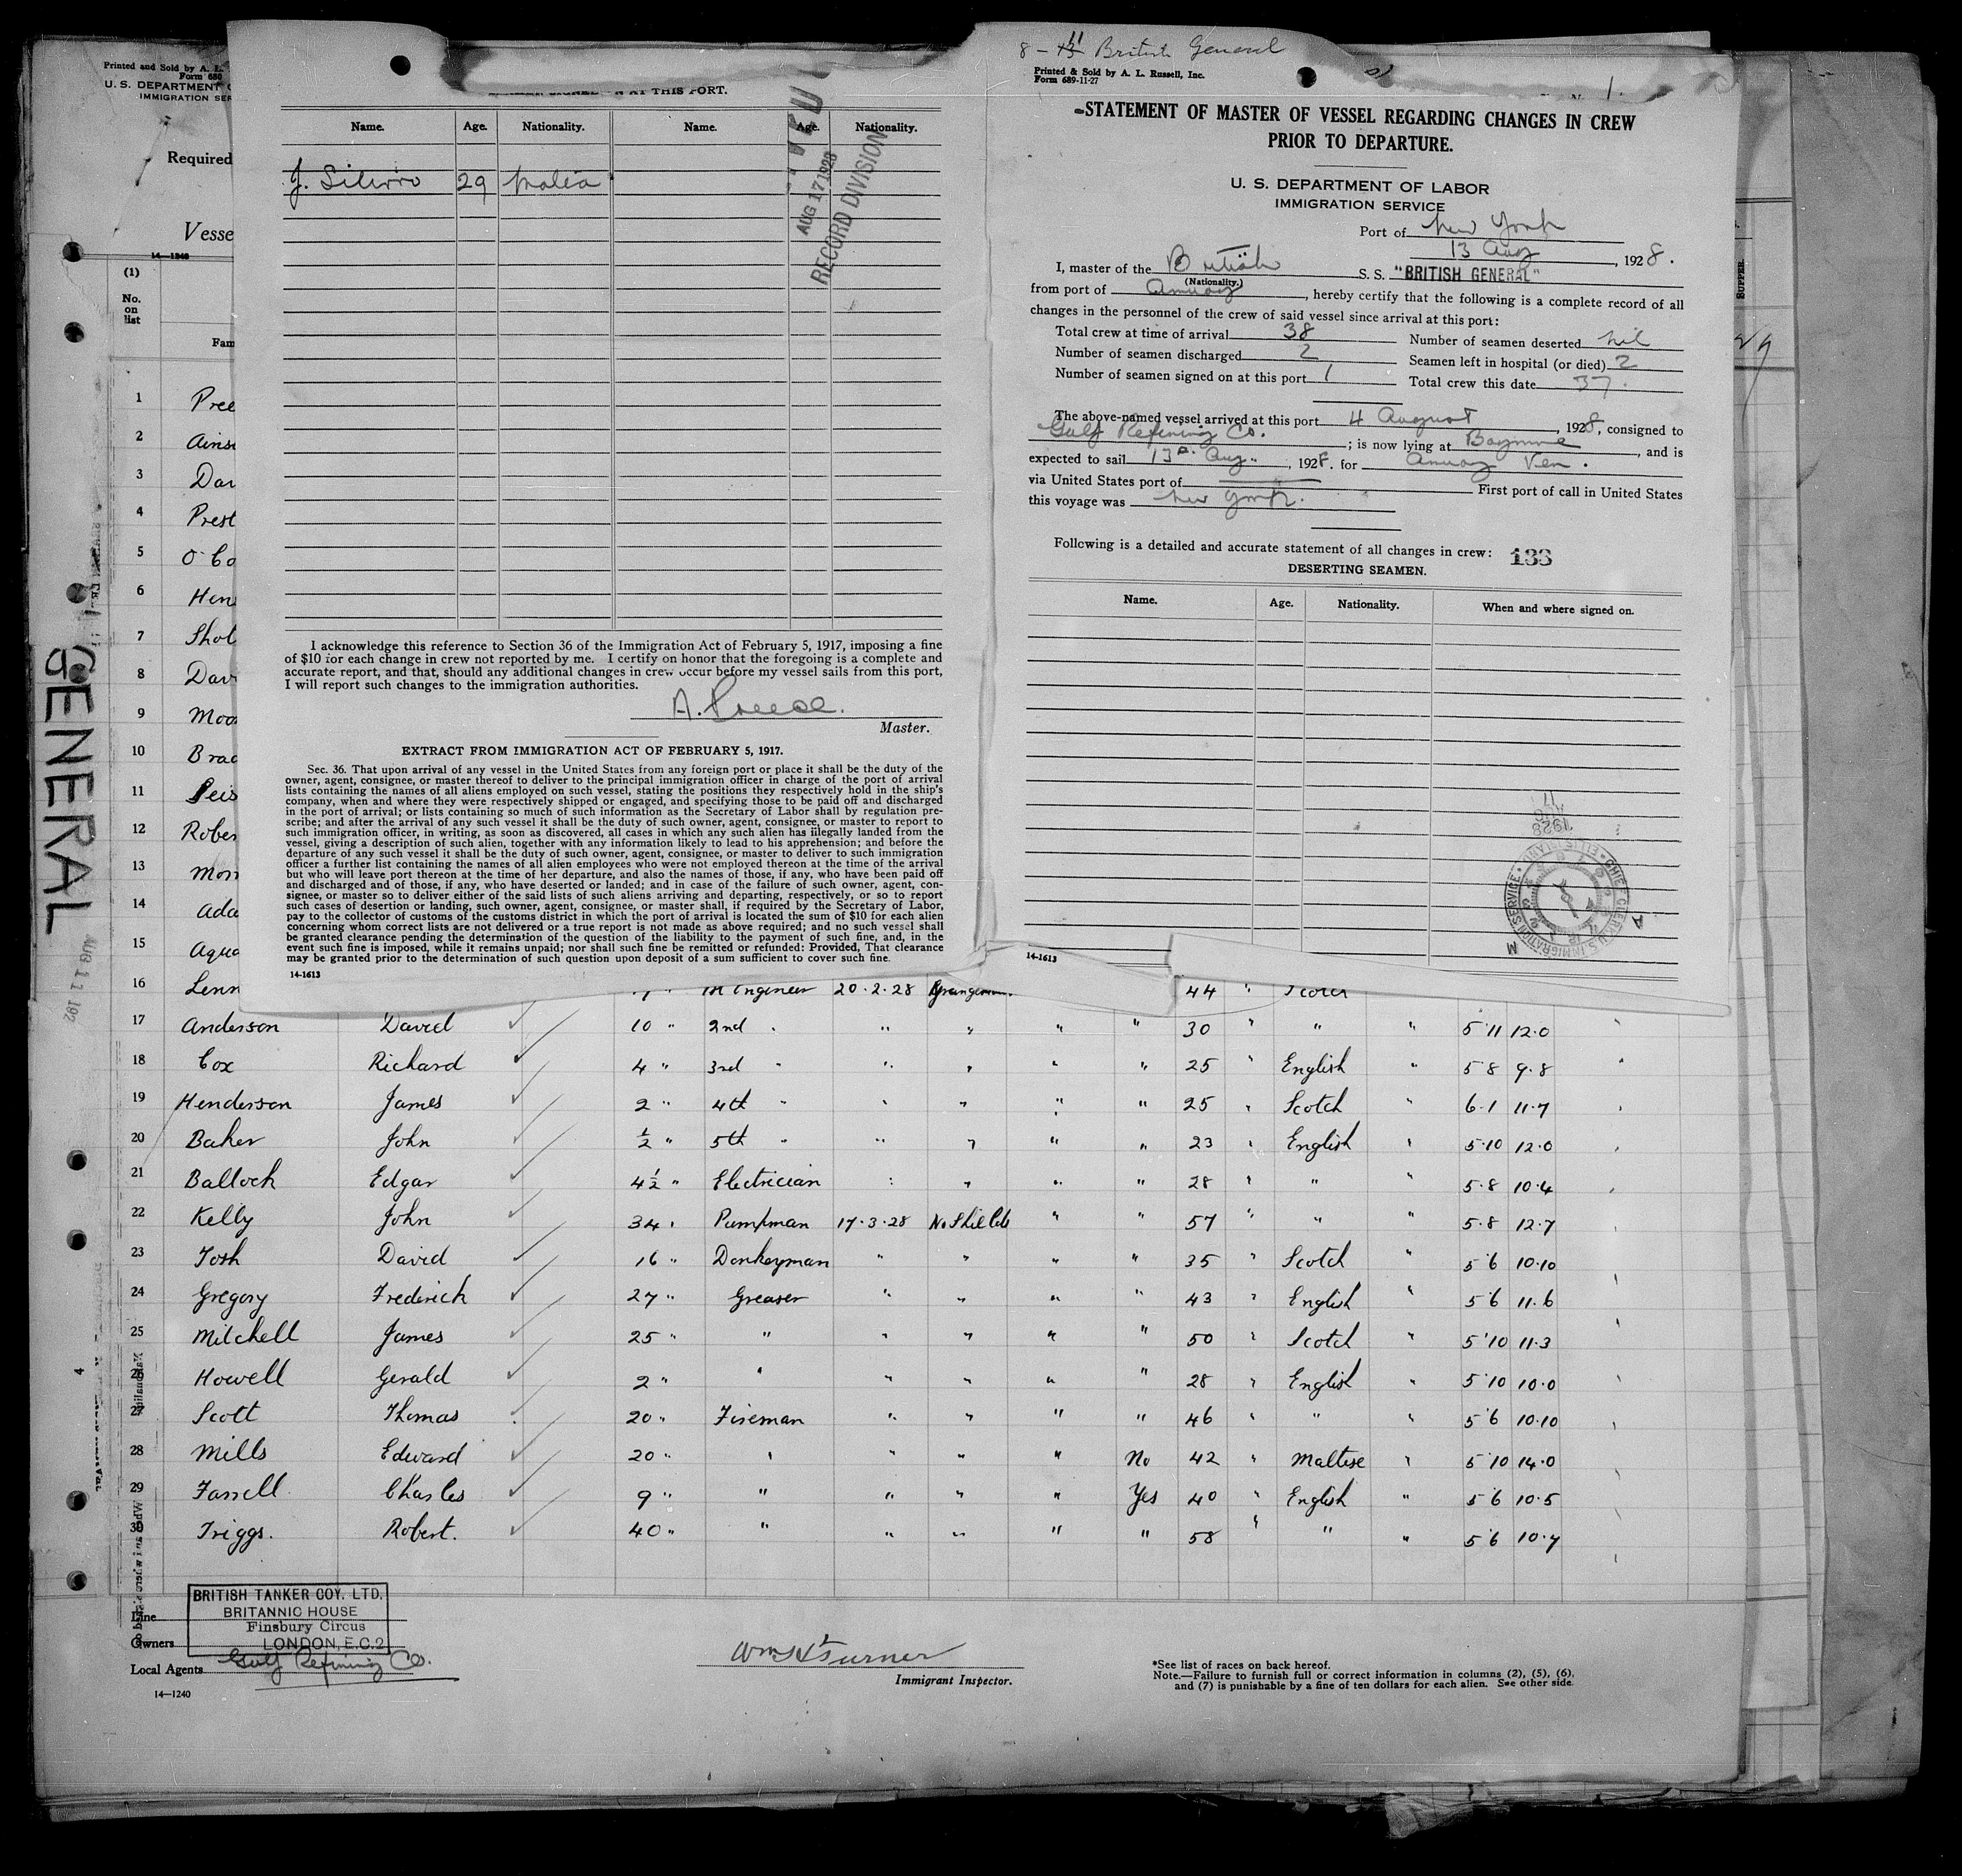 Printed and Sold by A. L.
Form 680
U. S. DEPARTMENT
IMMIGRATION SER
Required
Vesse
14—1240
(1)
No.
on
list
Fam
1 Pree
2 Ains
3 Dav
4 Prest
5 O'Co
6 Hen
7 Shot
8 Dav
9 Moo
10 Brad
11 Seis
12 Rober
13 Morr
14 Ada
15 Aqua
GENERAL
AT THIS PORT.
Name. Age. Nationality. Name. Age. Nationality.
J. Silivro 29 Malta
AUG 17 1928
RECORD DIVISION
I acknowledge this reference to Section 36 of the Immigration Act of February 5, 1917, imposing a fine
of $10 for each change in crew not reported by me. I certify on honor that the foregoing is a complete and
accurate report, and that, should any additional changes in crew occur before my vessel sails from this port,
I will report such changes to the immigration authorities.
A. Preece.
Master.
EXTRACT FROM IMMIGRATION ACT OF FEBRUARY 5, 1917.
Sec. 36. That upon arrival of any vessel in the United States from any foreign port or place it shall be the duty of the
owner, agent, consignee, or master thereof to deliver to the principal immigration officer in charge of the port of arrival
lists containing the names of all aliens employed on such vessel, stating the positions they respectively hold in the ship's
company, when and where they were respectively shipped or engaged, and specifying those to be paid off and discharged
in the port of arrival; or lists containing so much of such information as the Secretary of Labor shall by regulation pre-
scribe; and after the arrival of any such vessel it shall be the duty of such owner, agent, consignee, or master to report to
such immigration officer, in writing, as soon as discovered, all cases in which any such alien has illegally landed from the
vessel, giving a description of such alien, together with any information likely to lead to his apprehension; and before the
departure of any such vessel it shall be the duty of such owner, agent, consignee, or master to deliver to such immigration
officer a further list containing the names of all alien employees who were not employed thereon at the time of the arrival
but who will leave port thereon at the time of her departure, and also the names of those, if any, who have been paid off
and discharged and of those, if any, who have deserted or landed; and in case of the failure of such owner, agent, con-
signee, or master so to deliver either of the said lists of such aliens arriving and departing, respectively, or so to report
such cases of desertion or landing, such owner, agent, consignee, or master shall, if required by the Secretary of Labor,
pay to the collector of customs of the customs district in which the port of arrival is located the sum of $10 for each alien
concerning whom correct lists are not delivered or a true report is not made as above required; and no such vessel shall
be granted clearance pending the determination of the question of the liability to the payment of such fine, and, in the
event such fine is imposed, while it remains unpaid; nor shall such fine be remitted or refunded: Provided, That clearance
may be granted prior to the determination of such question upon deposit of a sum sufficient to cover such fine.
14-1613
8 - 11 British General
Printed & Sold by A. L. Russell, Inc.
Form 689-11-27
1.
STATEMENT OF MASTER OF VESSEL REGARDING CHANGES IN CREW
PRIOR TO DEPARTURE.
U. S. DEPARTMENT OF LABOR
IMMIGRATION SERVICE
Port of New York
13 Aug, 1928.
I, master of the British S. S. "BRITISH GENERAL"
(Nationality.)
from port of Amuay, hereby certify that the following is a complete record of all
changes in the personnel of the crew of said vessel since arrival at this port:
Total crew at time of arrival 38 Number of seamen deserted nil
Number of seamen discharged 2 Seamen left in hospital (or died) 2
Number of seamen signed on at this port 1 Total crew this date 37.
The above-named vessel arrived at this port 4 August, 1928, consigned to
Gulf Refining Co.; is now lying at Bayonne, and is
expected to sail 13th Aug., 1928. for Amuay Ven.
via United States port of First port of call in United States
this voyage was New York.
Following is a detailed and accurate statement of all changes in crew: 133
DESERTING SEAMEN.
Name. Age. Nationality. When and where signed on.
14-1613
SUPPER.
16 Lenn 1st Engineer 20.2.28 44 " Scotch
17 Anderson David 10 " 2nd " " " " " 30 " " " 5 11 12.0
18 Cox Richard 4 " 3rd " " " " " 25 " English " 5 8 9.8
19 Henderson James 2 " 4th " " " " " 25 " Scotch " 6.1 11.7
20 Baker John ½ " 5th " " " " " 23 " English " 5.10 12.0
21 Ballock Edgar 4½ " Electrician " " " " 28 " " " 5.8 10.4
22 Kelly John 34 " Pumpman 17.3.28 No Shields " " 57 " " " 5.8 12.7
23 Tosh David 16 " Donkeyman " " " " 35 " Scotch " 5 6 10.10
24 Gregory Frederick 27 " Greaser " " " " 43 " English " 5 6 11.6
25 Mitchell James 25 " " " " " " 50 " Scotch " 5 10 11.3
26 Howell Gerald 2 " " " " " " 28 " English " 5 10 10.0
27 Scott Thomas 20 " Fireman " " " " 46 " " " 5 6 10.10
28 Mills Edward 20 " " " " " No 42 " Maltese " 5 10 14.0
29 Farrell Charles 9 " " " " " Yes 40 " English " 5 6 10.5
30 Triggs. Robert. 40 " " " " " " 58 " " " 5 6 10.7
BRITISH TANKER COY. LTD.
BRITANNIC HOUSE
Finsbury Circus
LONDON, E.C.2
Line
Owners
Local Agents Gulf Refining Co.
14—1240
Wm H Turner
Immigrant Inspector.
*See list of races on back hereof.
Note.—Failure to furnish full or correct information in columns (2), (5), (6),
and (7) is punishable by a fine of ten dollars for each alien. See other side.